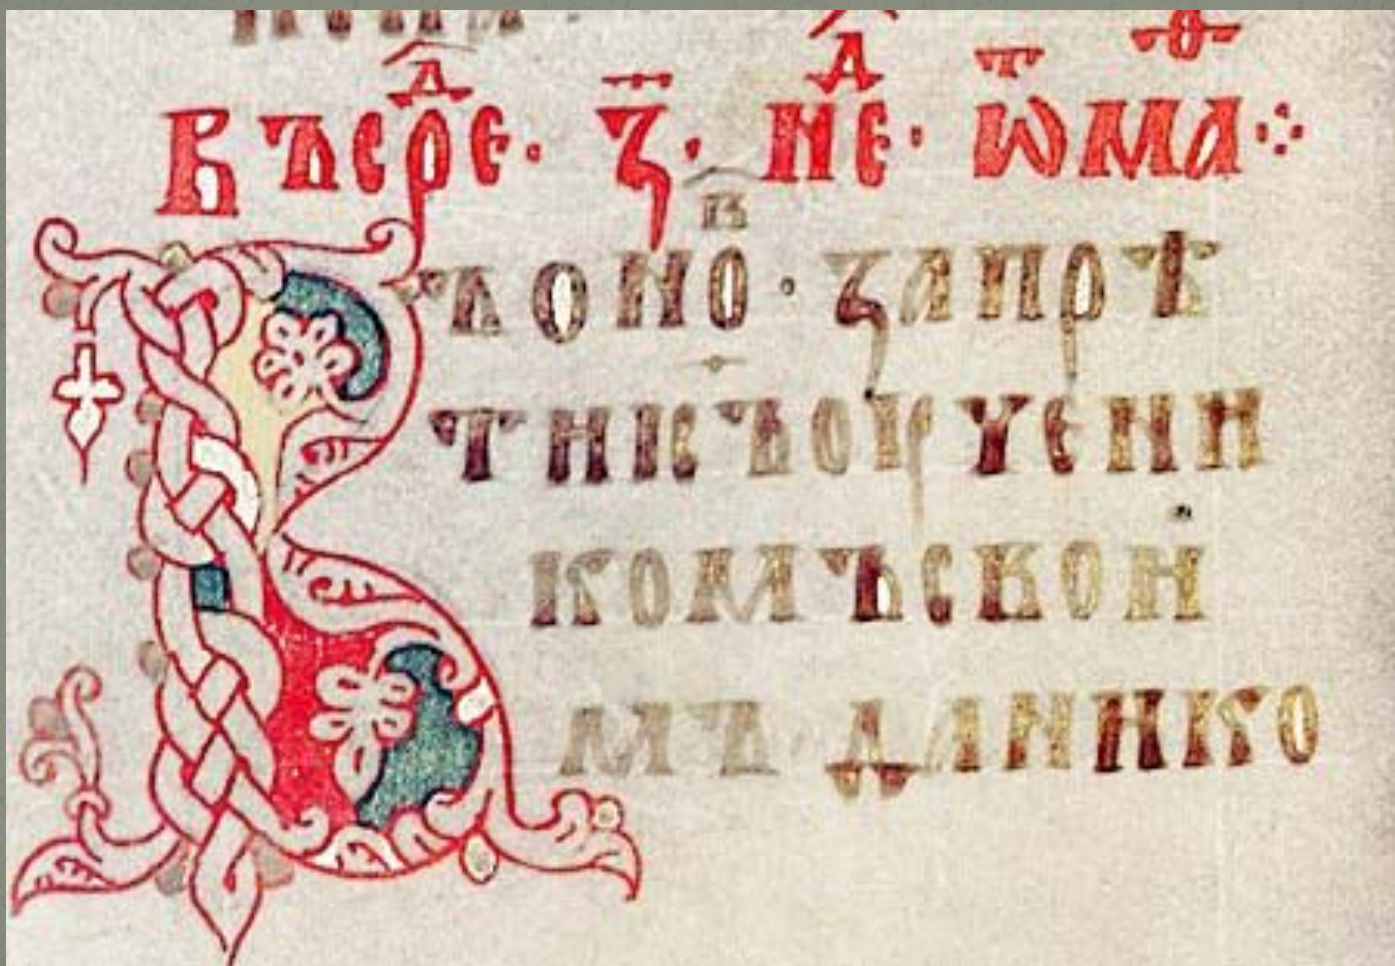 ВЪ СРЕД· З҃· НЕД· Ѿ МАѲ ⁘
ВЪ ОНО В҃Р· ЗАПРѢ
ТИ ІС҃Ъ ОУЧЕНИ
КОМЪ СВОИ
МЪ· ДА НИКО